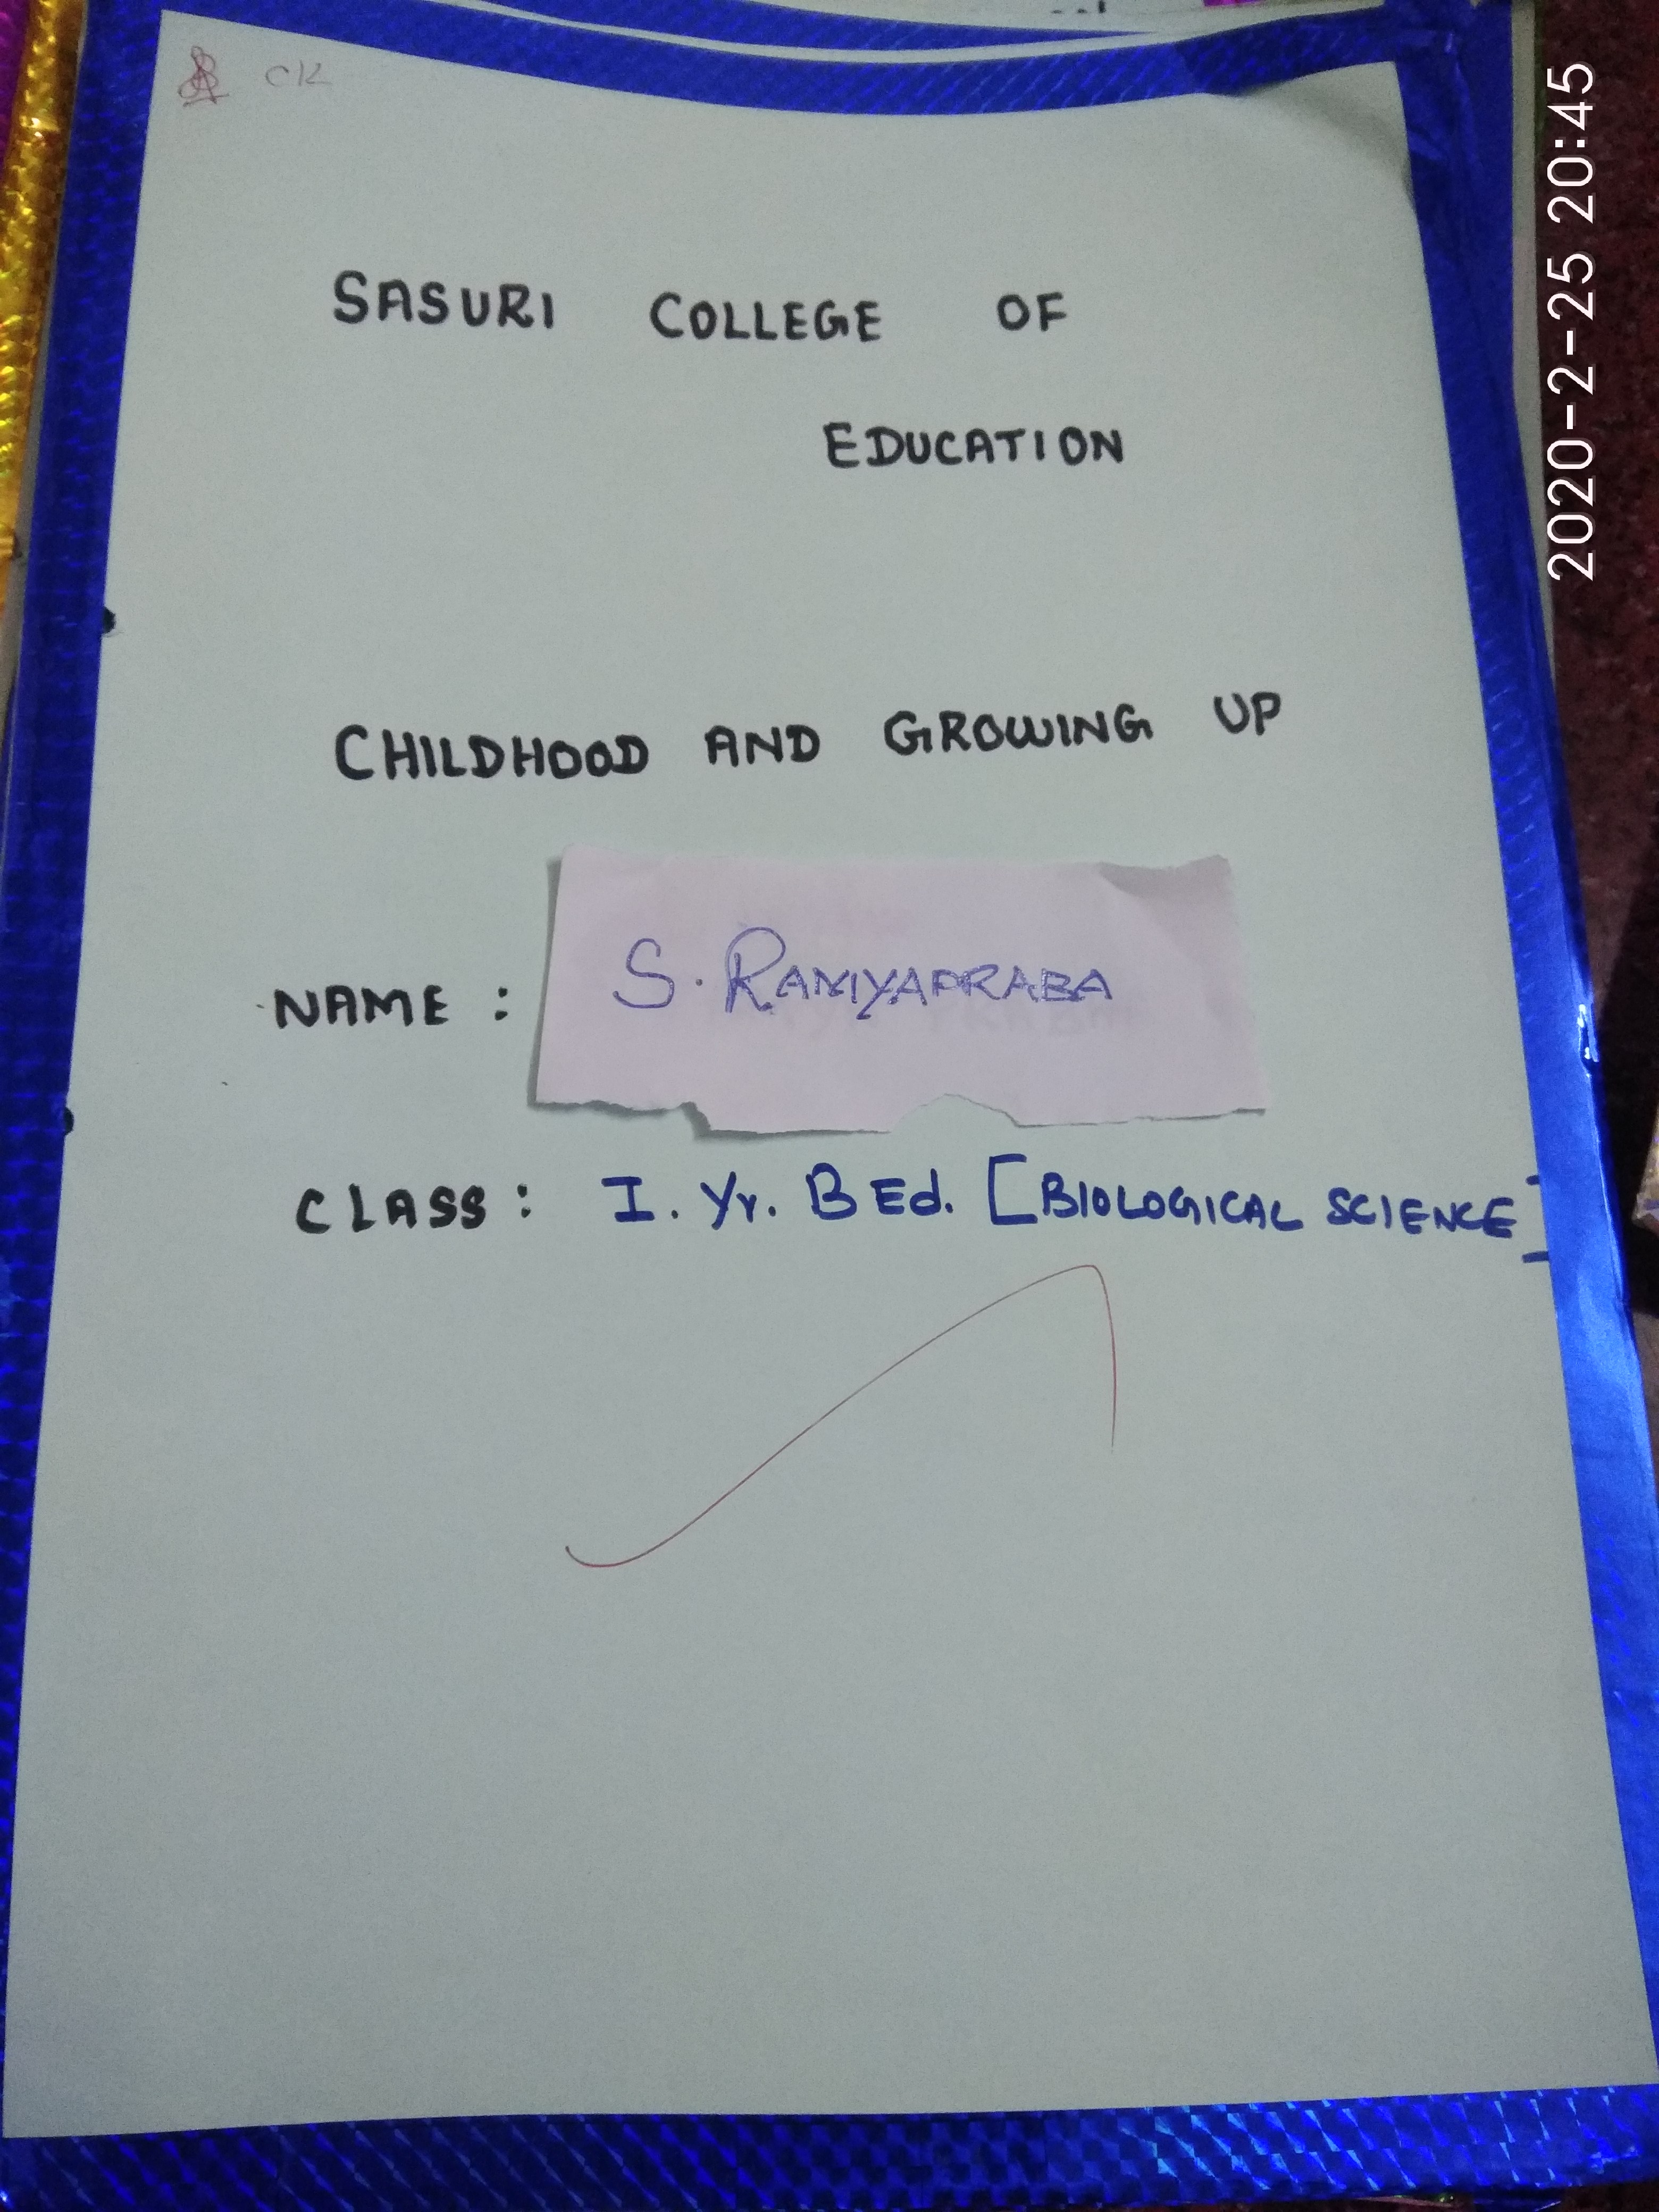 CK
SASURI COLLEGE OF
EDUCATION
CHILDHOOD AND GROWING UP
NAME : S. RAMYAPRABA
CLASS : I. Yr. B Ed. [BIOLOGICAL SCIENCE]
2020-2-25 20:45